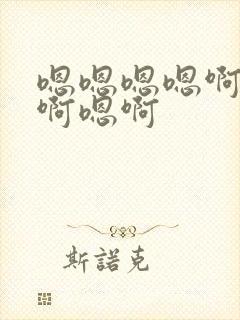 嗯嗯嗯嗯啊
啊嗯啊
斯諾克